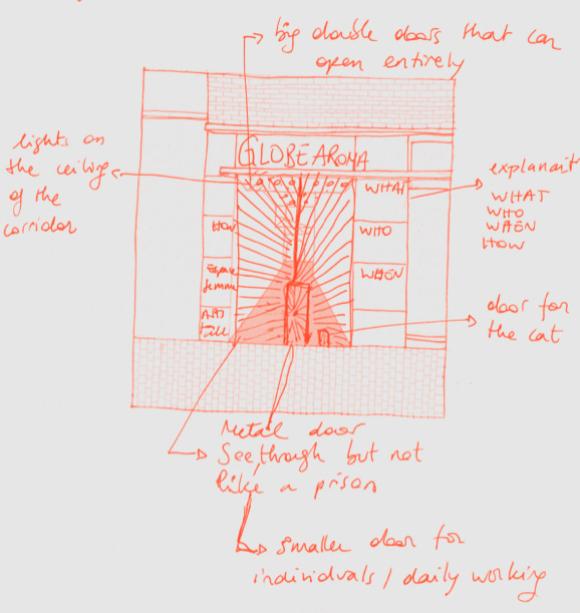 big double doors that can
open entirely
GLOBE AROMA
lights on
the ceiling
of the
corridor
WHAT
WHO
WHEN
HOW
Espace
femme
ART
explanait
WHAT
WHO
WHEN
HOW
door for
the cat
Metal door
See through but not
like a prison
smaller door for
individuals / daily working